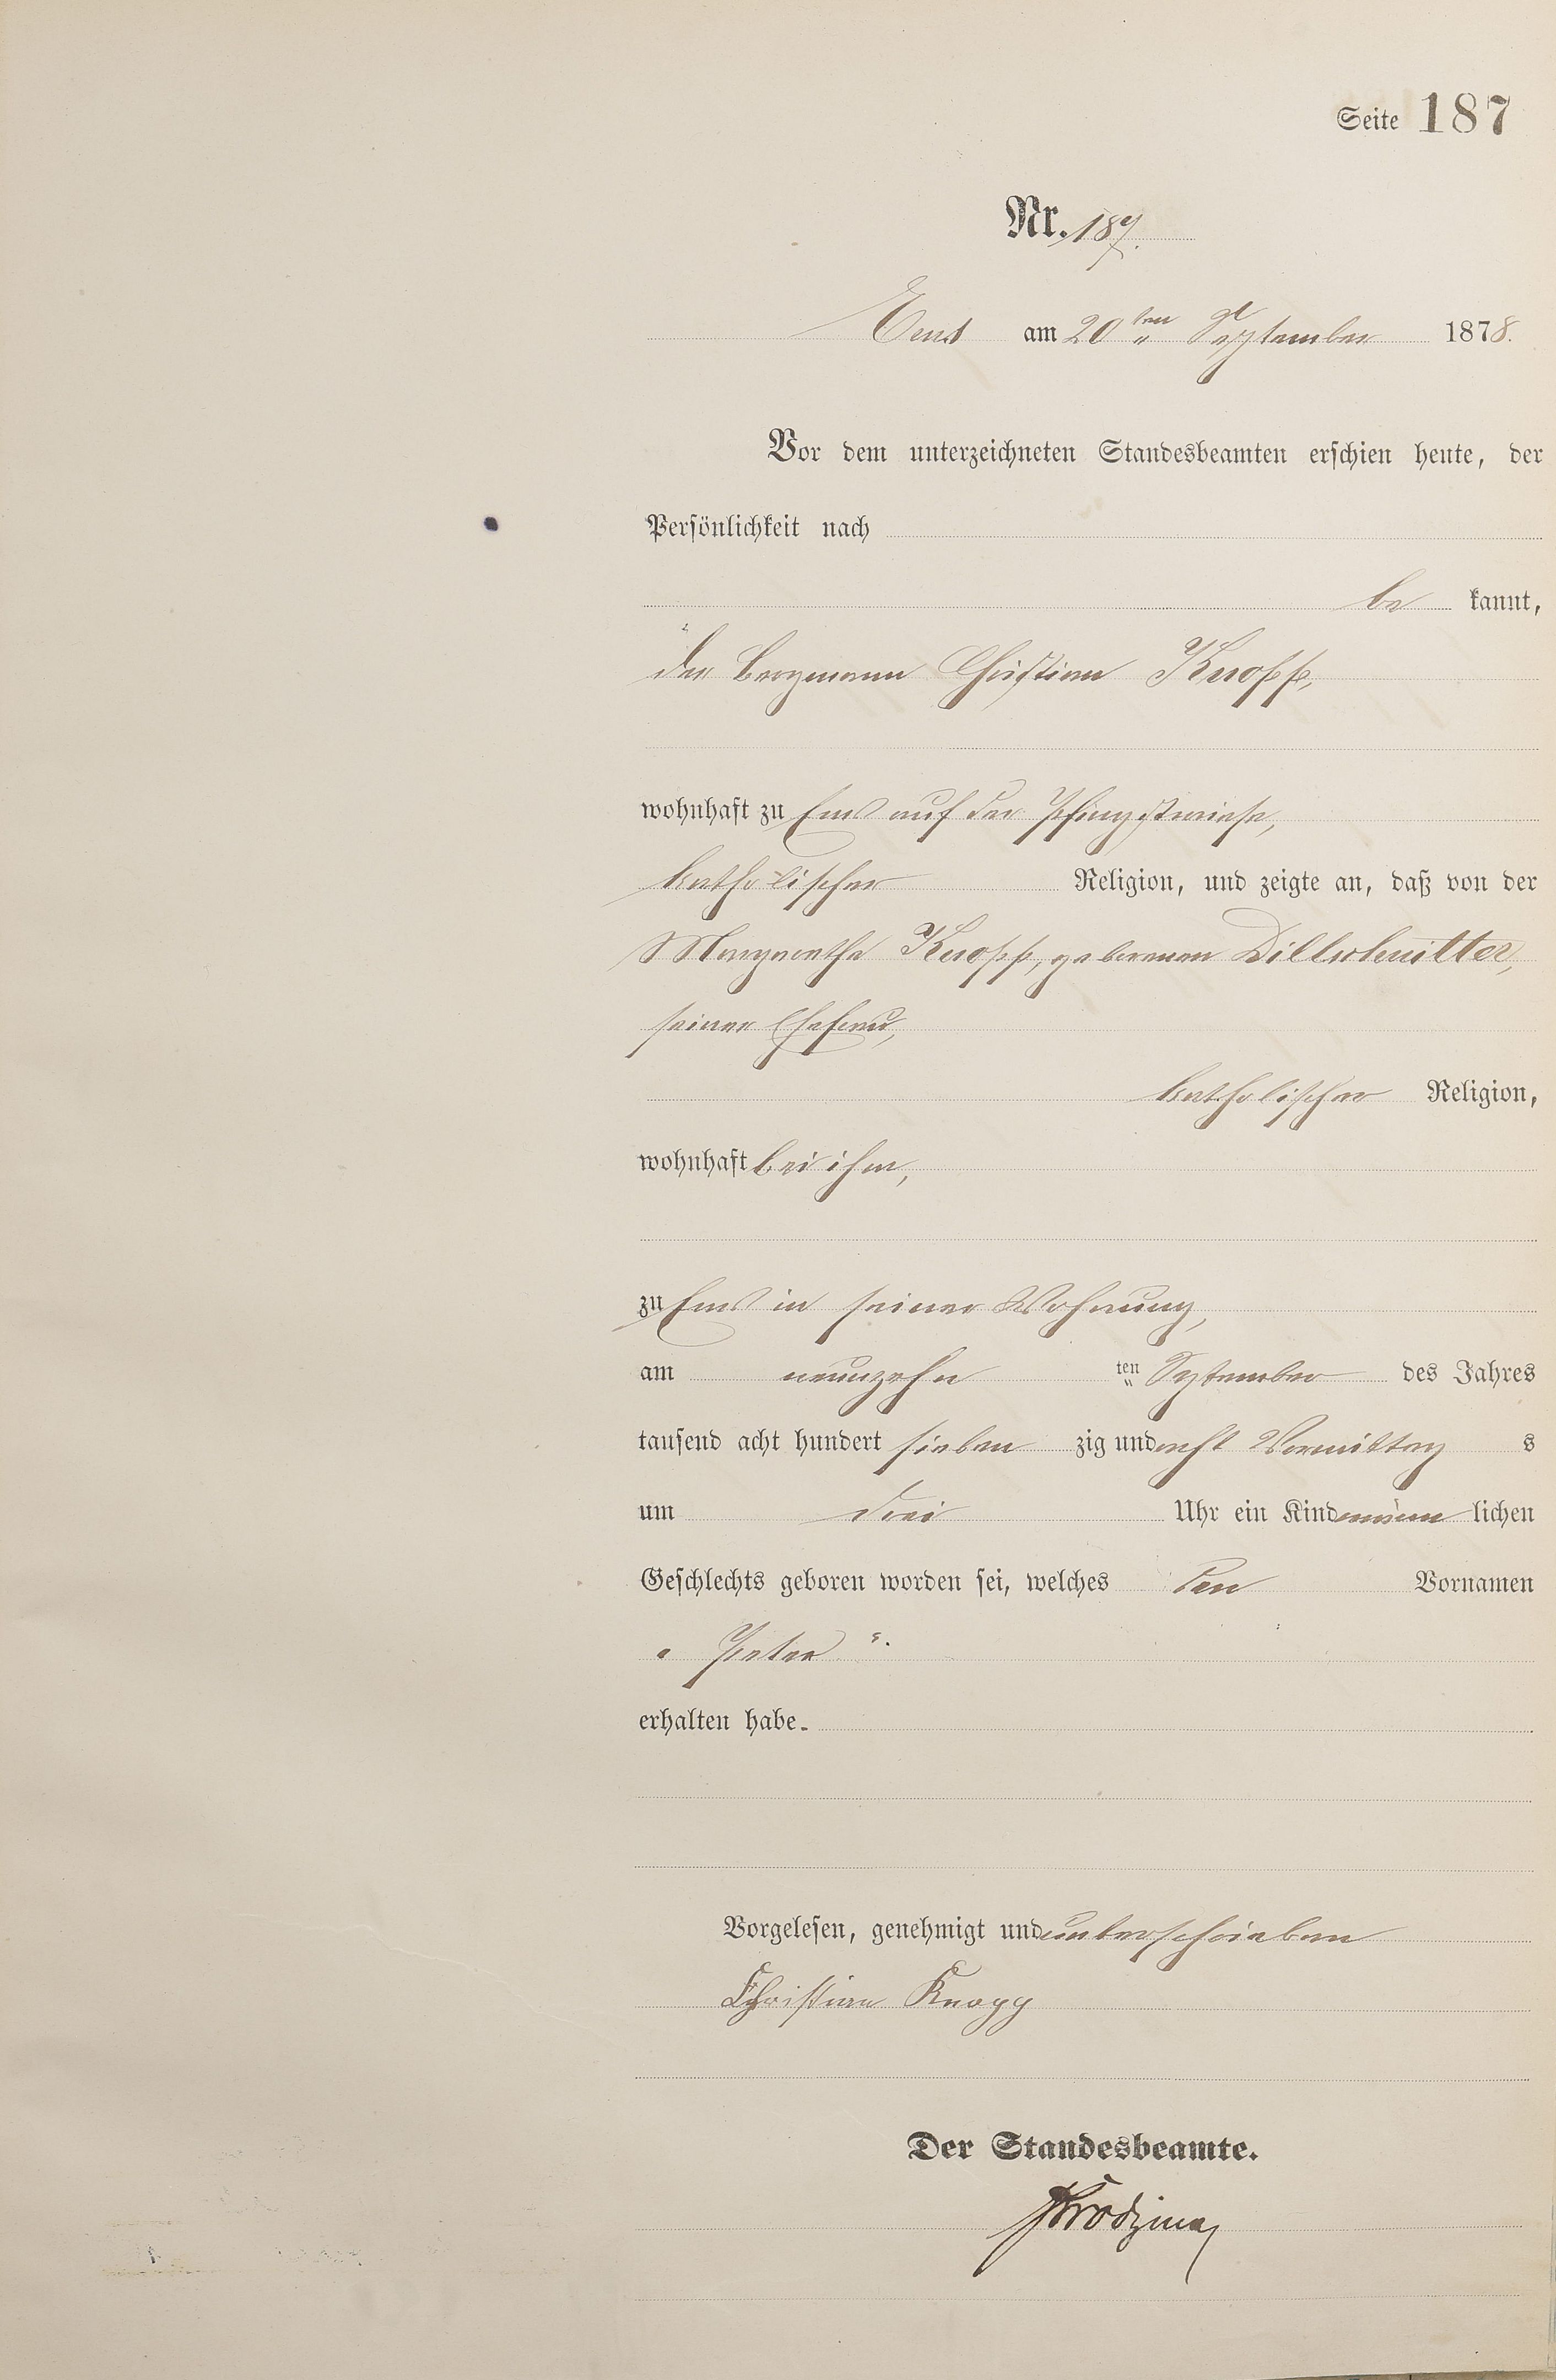 Seite 187
Nr. 187.
Ems am 20ten September 1878.
Vor dem unterzeichneten Standesbeamten erschien heute, der
Persönlichkeit nach
be kannt,
der Bergmann Christian Knopp,
wohnhaft zu Ems auf der Pfingstwiese,
katholischer Religion, und zeigte an, daß von der
Margaretha Knopp, geborenen Dillschnitter,
seiner Ehefrau,
katholischer Religion,
wohnhaft bei ihm,
zu Ems in seiner Wohnung,
am neunzehn ten September des Jahres
tausend acht hundert sieben zig und acht Vormittag s
um drei Uhr ein Kind männ lichen
Geschlechts geboren worden sei, welches den Vornamen
„Peter“.
erhalten habe.
Vorgelesen, genehmigt und unterschrieben
Christian Knopp
Der Standesbeamte.